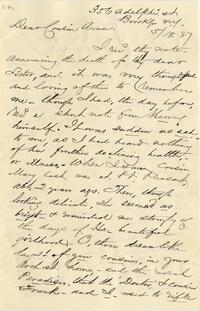 356 Adelphi st.
Brookly N.Y.
5/18.87
Dear Cousin Anna.
I rec'd the note
announcing the death of my dear
Sister, and it was very thoughtful
and loving of thee to remember
me - though I had, the day before,
rec'd a short note from Henry
himself. It was sudden as sad
to me, as I had heard nothing
of her further declining health,
or illness - When I cousin
Mary Cash was at Pt. Pleasant,
abt. 2 years ago. Then, though
looking delicate, she seemed as
bright & reminded me strongly of
the days of her beautiful
girlhood. O those dreamlike
days! of you cousins, in your
home, and the rural
Paradise, that the Doctor, & cousin
Frank - and I used to